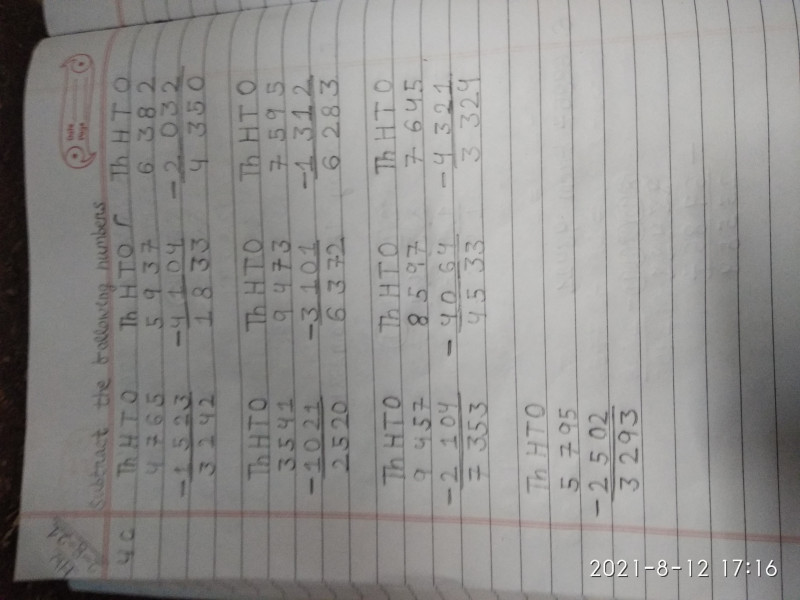 Date
Page
4C Subtract the following numbers
Th H T O Th H T O Th H T O
4 7 6 5 5 9 3 7 6 3 8 2
- 1 5 2 3 - 4 1 0 4 - 2 0 3 2
3 2 4 2 1 8 3 3 4 3 5 0
Th H T O Th H T O Th H T O
3 5 4 1 9 4 7 3 7 5 9 5
- 1 0 2 1 - 3 1 0 1 - 1 3 1 2
2 5 2 0 6 3 7 2 6 2 8 3
Th H T O Th H T O Th H T O
9 4 5 7 8 5 9 7 7 6 4 5
- 2 1 0 4 - 4 0 6 4 - 4 3 2 1
7 3 5 3 4 5 3 3 3 3 2 4
Th H T O
5 7 9 5
- 2 5 0 2
3 2 9 3
2021-8-12 17:16